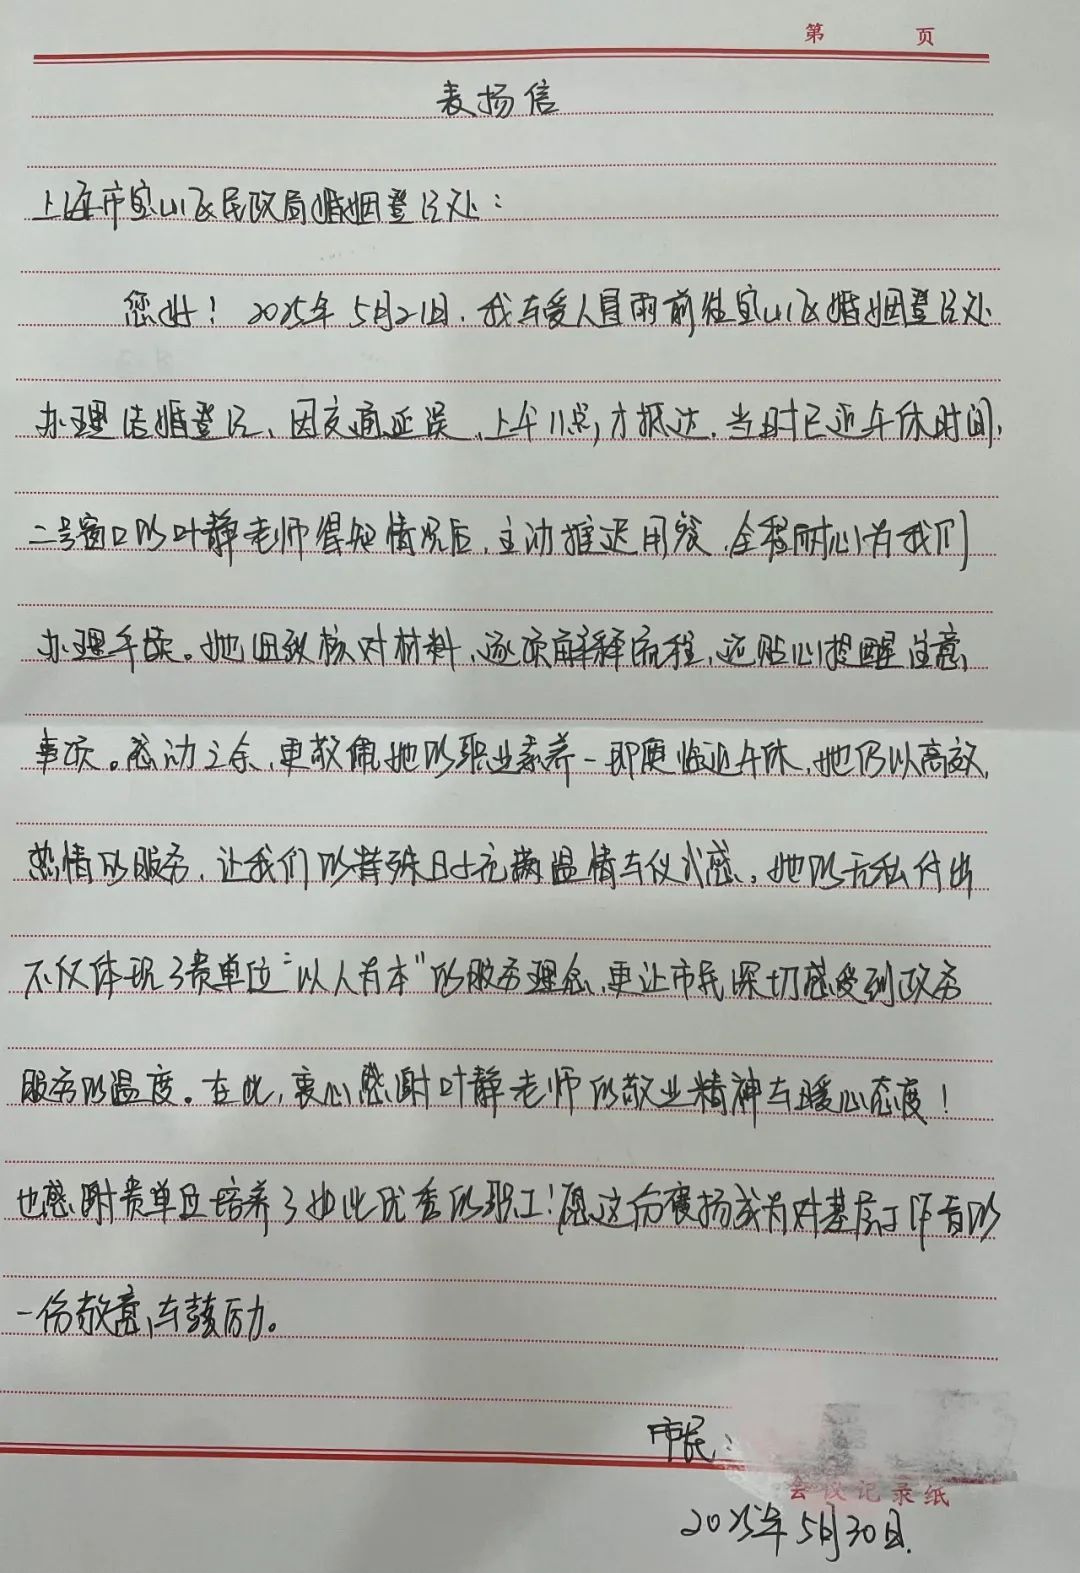 第 页
表扬信
上海市宝山区民政局婚姻登记处：
您好！2025年5月21日，我与爱人冒雨前往宝山区婚姻登记处
办理结婚登记，因交通延误，上午11点，才抵达，当时已近午休时间，
二号窗口的叶静老师得知情况后，主动推迟用餐，全程耐心为我们
办理手续。她细致核对材料，逐项解释流程，还贴心提醒注意
事项。感动之余，更敬佩她的职业素养－即便临近午休，她仍以高效，
热情的服务，让我们的特殊日子充满温情与仪式感，她的无私付出
不仅体现了贵单位“以人为本”的服务理念，更让市民深切感受到政务
服务的温度。在此，衷心感谢叶静老师的敬业精神与暖心态度！
也感谢贵单位培养了如此优秀的职工！愿这份褒扬成为对基层工作者的
一份敬意，与鼓励。
市民：
会议记录纸
2025年5月30日.